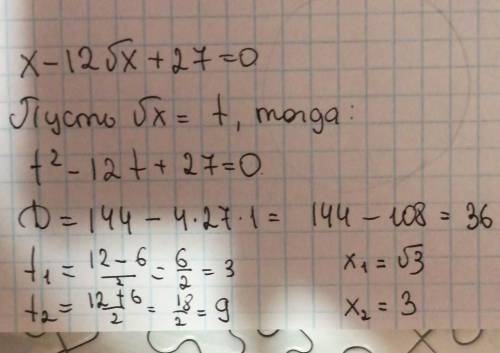 x − 12√x + 27 = 0
Пусть √x = t, тогда:
t² − 12t + 27 = 0
D = 144 − 4·27·1 = 144 − 108 = 36
t₁ = (12 − 6)/2 = 6/2 = 3 x₁ = √3
t₂ = (12 + 6)/2 = 18/2 = 9 x₂ = 3